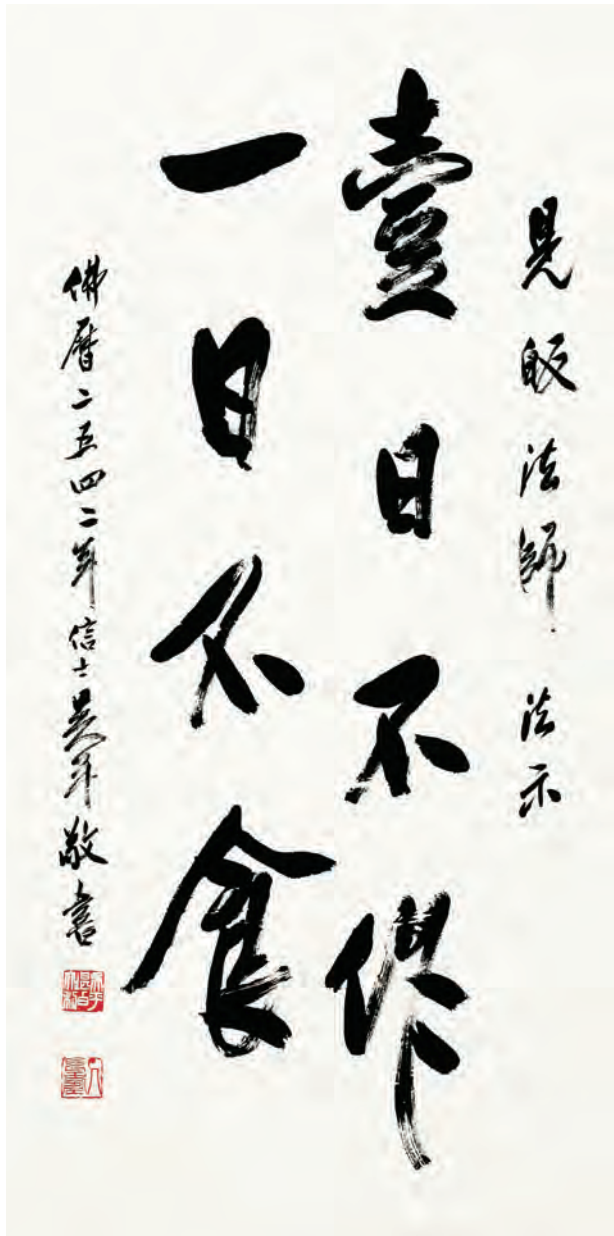 見 法師 法示
壹日不作
一日不食
佛曆二五四二年 信士吳平敬書